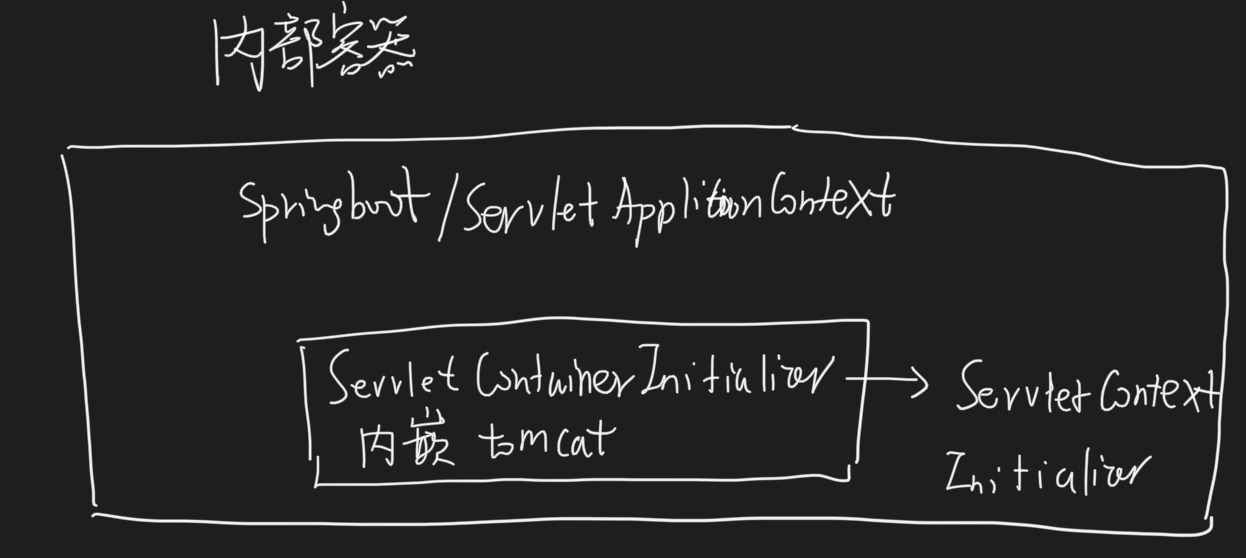 内部容器
Springboot/Servlet ApplitionContext
Servlet ContainerInitializer
内嵌 tomcat
ServletContext
Initializer